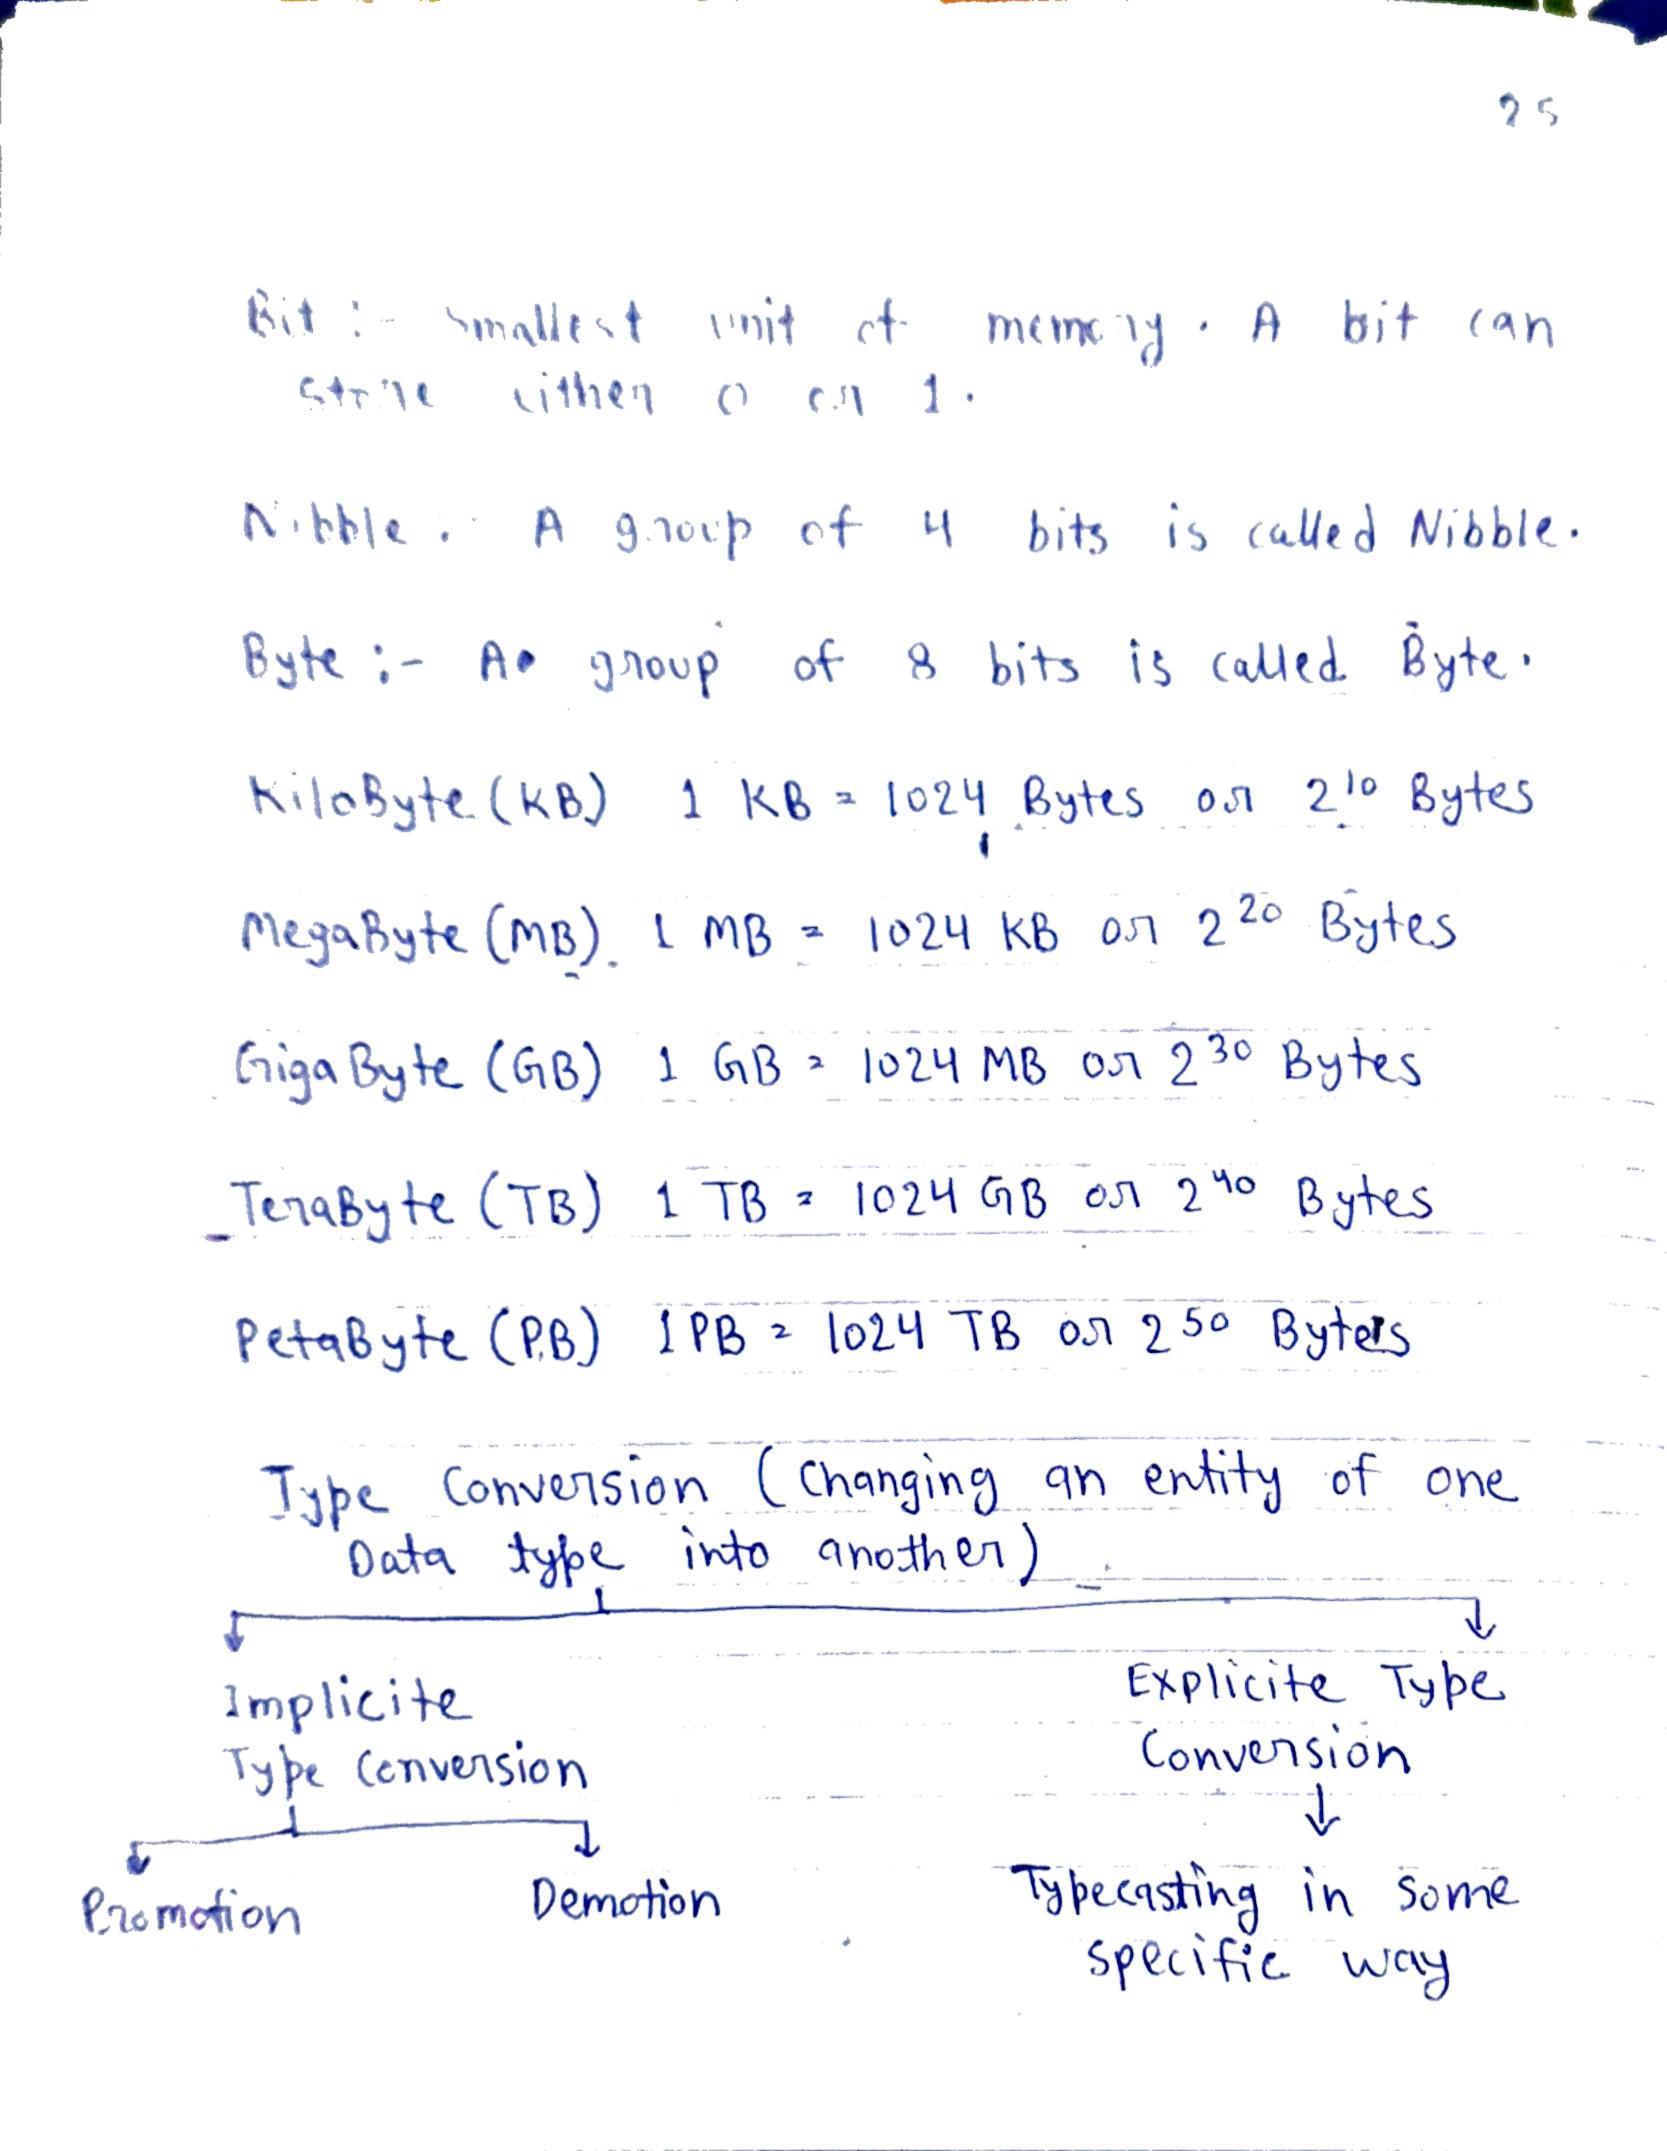 25
Bit :- smallest unit of memory. A bit can
store either 0 or 1.
Nibble :- A group of 4 bits is called Nibble.
Byte :- A group of 8 bits is called Byte.
KiloByte (KB) 1 KB = 1024 Bytes or 2^10 Bytes
MegaByte (MB). 1 MB = 1024 KB or 2^20 Bytes
GigaByte (GB) 1 GB = 1024 MB or 2^30 Bytes
TeraByte (TB) 1 TB = 1024 GB or 2^40 Bytes
PetaByte (PB) 1 PB = 1024 TB or 2^50 Bytes
Type Conversion (Changing an entity of one
Data type into another)
Implicite
Type Conversion
Explicite Type
Conversion
Promotion
Demotion
Typecasting in some
specific way